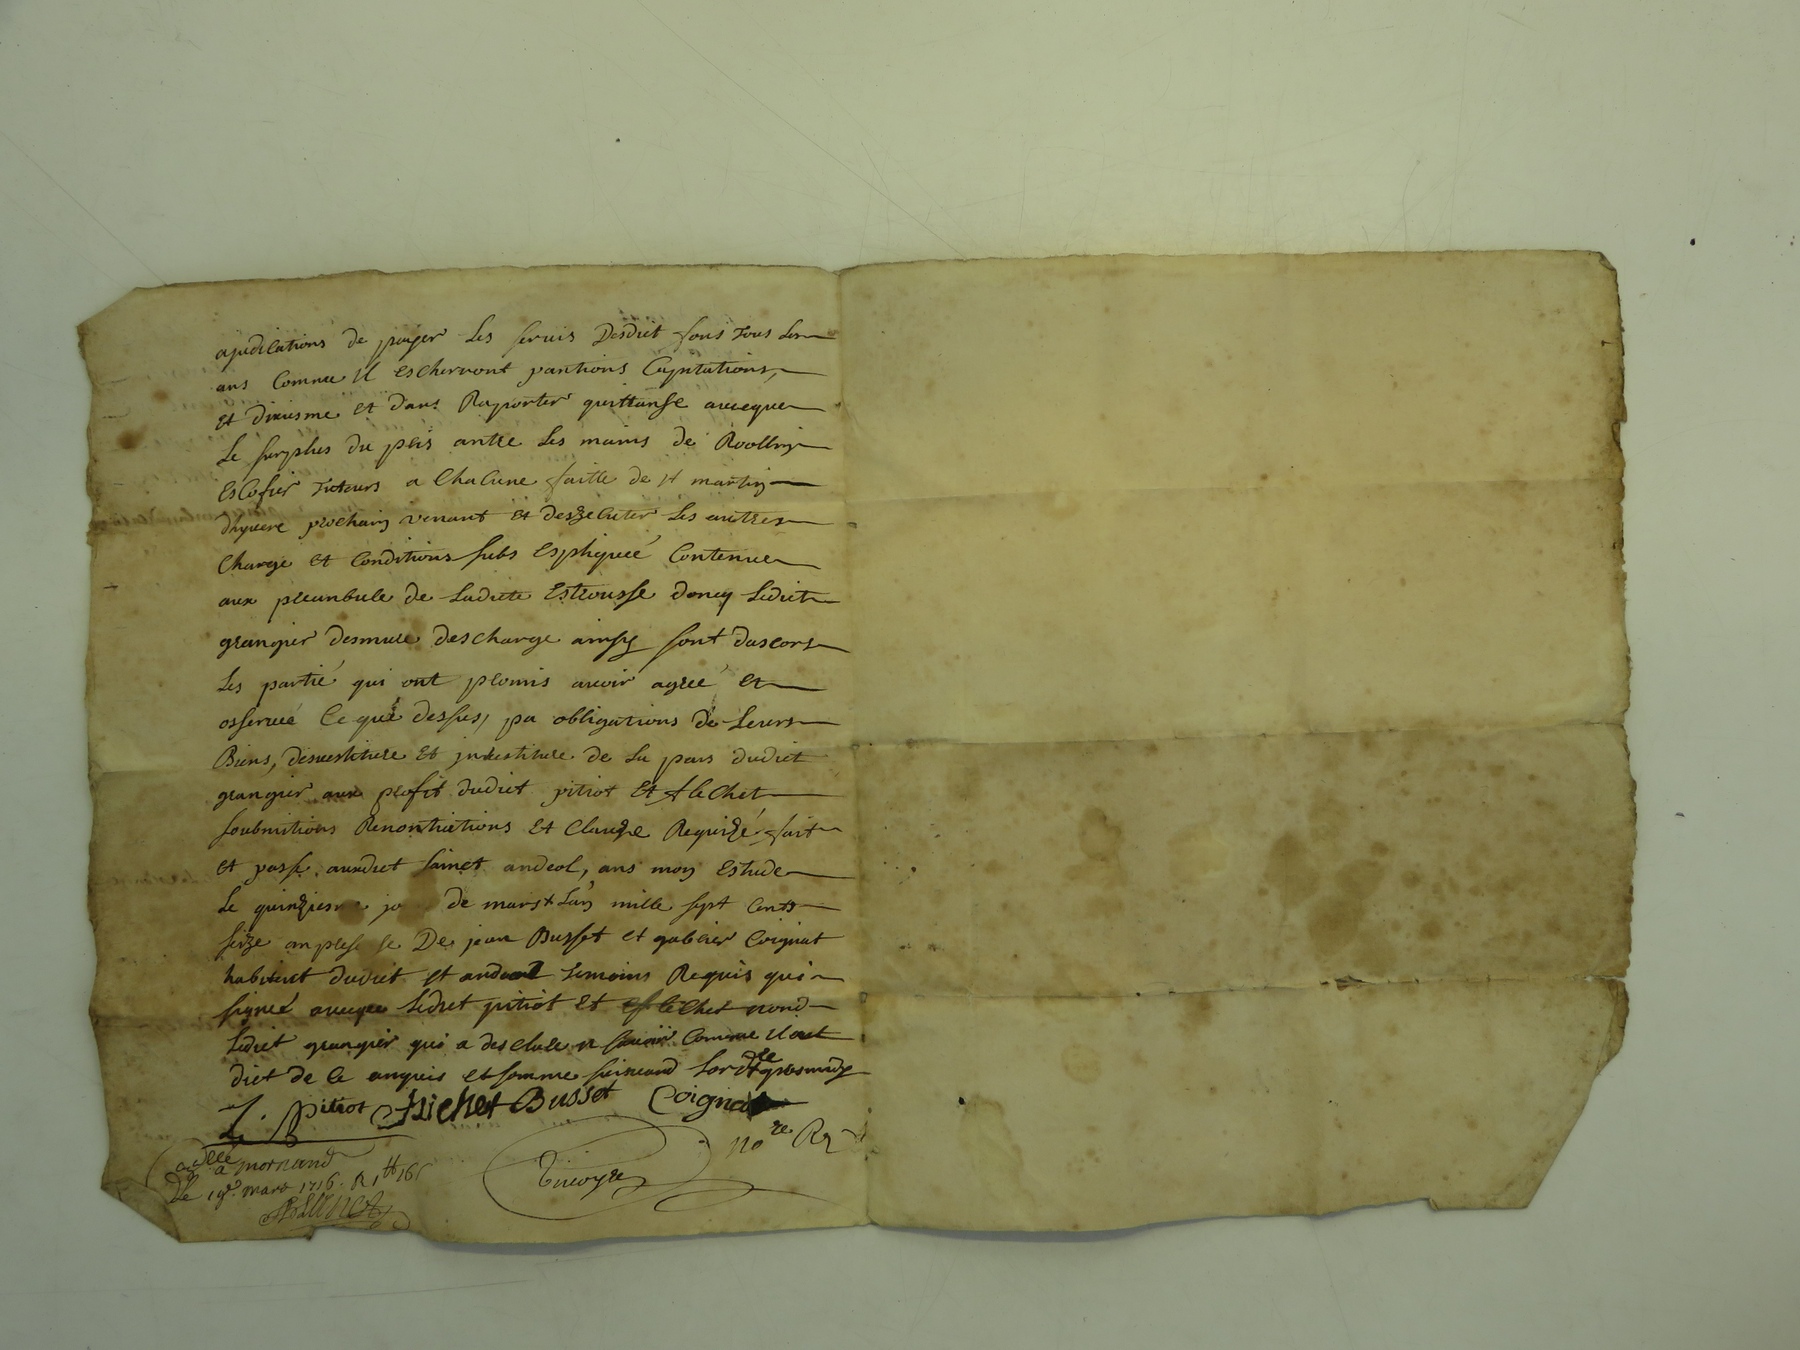 ajudications de payer les servis desdict fons tous les
ans comme il escherront pantions capitations,
et dixiesme et dans Raporter quittanse avecque
le surplus du pris antre les mains de
Escofier a chacune faitte de st martin
dhyvere prochain venant et deszecuter les autres
charge et conditions subs espliqueé contenue
aux preanbule de ladicte Estrousse donq ledict
grangier desmure descharge ainsy sont dascors
les partié qui ont promis avoir agreé et
osserveé ce que dessus, pa obligations de leurs
Biens, desvestiture et jnvestiture de la pars dudict
grangier aux profit dudict pitiot et flechet
soubmitions Renontiations et clauze Requizé fait
et passé audict sainct andeol, ans mon Estude
le quinziesme jo de mars lan mille sept cents
seize anprese se De jean Busset et gabrier Coignat
habitent dudict st andeol temoins Requis qui
signeé avecque ledict pitiot et flechet nond
ledict grangier qui a desclare ne savoir comme il ont
dict de ce anquis et somme suivand lord
pitiot flichet Busset Coignat
no re
a mornand
Le 19e mars 1716